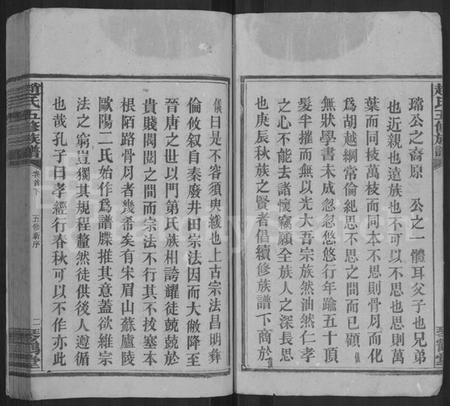 趙氏五修族譜
琴鶴堂
瑞公之裔原　公之一體耳父子也兄弟
也近親也遠族也不可以不思也思則萬
葉而同枝萬枝而同本不思則骨月而化
為胡越綱常倫紀思不思之間而已顧儀
無狀學書未成忽忽悠悠行年踰五十頂
髮半摧而無以光大吾宗族然油然仁孝
之心不能去諸懷竊願全族人之深長思
也庚辰秋族之賢者倡續修族譜下商於
儀曰是不容須臾緩也上古宗法昌明彝
倫攸叙自秦廢井田宗法因而大敝降至
晉唐之世以門第氏族相誇耀徒兢兢於
貴賤閥閱之間而宗法不行其不拔塞本
根陌路骨月者幾希矣有宋眉山蘇廬陵
歐陽二氏始作為譜牒推其意蓋欲維宗
法之窮豈獨其規程釐然徒供後人遵循
也哉孔子曰孝經行春秋可以不作亦此
趙氏五修族譜
卷首下
五修新序
二
琴鶴堂